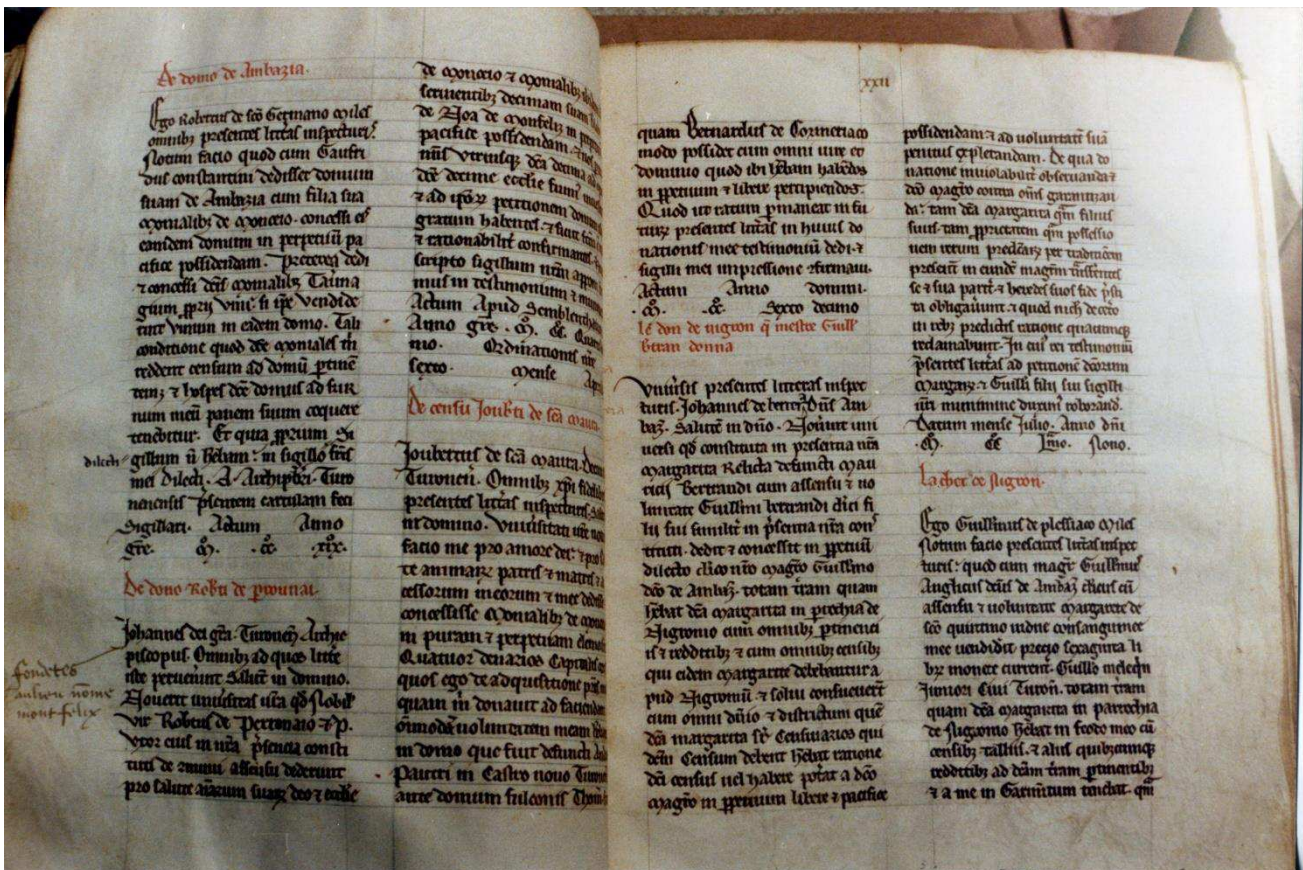 De domo de Ambazia.
Ego Robertus de sco Germano Miles
omnibꝫ presentes litteras inspecturis.
Notum facio quod cum Gaufri
dus constantini dedisset domum
suam de Ambazia cum filia sua
monialibꝫ de Monceio. concessi eis
eandem domum in perpetuū pa
cifice possidendam. Preterea dedi
⁊ concessi dcis monialibꝫ
vini. si ipe vendide
rint vinum in eadem domo. Tali
conditione quod dce moniales m
reddent censum ad domū ptine
tem; ⁊ hospes dce domus ad fur
num meū panem suum coquere
tenebitur. Et quia pprium Si
dilecti
gillum n hebam: in sigillo fris
mei dilecti. A. Archipbri. Turo
nensis psentem cartulam feci
Sigillari. Actum Anno
gre. M. CC. XIX.
De dono Robti de
Johannes dei gra. Turoneñ Archie
piscopus. Omnibꝫ ad quos littere
iste peruenerint Salute in domino.
fondetes
aulieu nōme
mont felix
Nouerit uniuersitas ura qd Nobil
vir Robtus de ⁊ P.
vxor eius in nra psencia consti
tuti de assensu dederunt
pro salute aiarum suarꝫ deo ⁊ ecclie
de Monceio ⁊ Monialibꝫ
seruientibꝫ decimam suam
de Noa de Monfelix in
pacifice possidendam.
dca decima
dce decime ecclie
⁊ ad petitionem
gratum habentes. ⁊ sicut
⁊ rationabilit confirmantes.
scripto sigillum nrm
mus in testimonium ⁊
Actum Apud
Anno gre. M. CC.
mo. Ordinationis nre
sexto. Mense
De censu Joubti de sca Maura.
Joubertus de sca Maura.
Turoneñ. Omnibꝫ xpi
presentes litteras inspecturis.
in domino. Vniuersitati ure
facio me pro amore dei: ⁊ pro
te animarꝫ patris ⁊ matris
cessorum meorum ⁊ mee
concessisse Monialibꝫ de
in puram ⁊ perpetuam
Quatuor denarios
quos ego de adquisitione
quam m donauit ad faciendam
omimodā uoluntatem meam
in domo que fuit defuncti
in Castro nouo
ante domum fulconis
xxii
quam Bernardus de Cormeriaco
modo possidet cum omni iure et
dominio quod ibi hebam habedos
in ppetuum ⁊ libere percipiendos.
Quod ut ratum pmaneat in fu
turꝫ presentes litteras in huius do
nationis mee testimoniū dedi. ⁊
sigilli mei impressione firmaui.
Actum Anno domini.
M. CC. Sexto decimo
le don de nigron q mestre Guill
btran donna
Vniusis presentes litteras inspec
turis. Johannes de Dns Am
baz. Salute in dno. Nouerit uni
uersi qd constituta in presentia nra
Margarita Relicta defuncti Mau
ricii Bertrandi cum assensu ⁊ uo
luntate Guillmi bertrandi dici fi
lii sui similit in psentia nra con
stituti. dedit ⁊ concessit in ppetuū
dilecto clico nro Magro Guillmo
dco de Ambaz. totam tram quam
hebat dca Margarita in prochia de
Nigronio cum omnibꝫ ptinenci
is ⁊ redditibꝫ ⁊ cum omnibꝫ censibꝫ
qui eidem Margarite debebantur a
pud Nigroniū. ⁊ solui consueuerūt
cum omni dnio ⁊ districtum que
dca margarita sr Censuarios qui
dem Censum debent hebat ratione
dci census uel habere potat a dco
magro in ppetuum libere ⁊ pacifice
possidendam. ⁊ ad voluntate suā
penitus expletandam. De qua do
natione inuiolabilit obseruanda ⁊
dco Magro contra omēs garentizan
da: tam dca Margarita qm filius
suus tam pprietatem qm possessio
nem rerum predcarꝫ per traditiōem
presentē in eundē magrm
se ⁊ sua parte ⁊ heredes suos fide psti
ta obligauūnt. ⁊ quod nich de cetro
in rebꝫ predictis ratione quacumqꝫ
reclamabunt. In cuis rei testimoniū
psentes litteras ad petitione dcorum
Margarꝫ. ⁊ Guilli filii sui sigilli
nri munimine duxim roborand.
Datum mense Julio. Anno dni
M. CC. Lmo. Nono.
la chet de Nigron.
Ego Guillmus de plessiaco Miles
Notum facio presentes litteras inspec
turis: quod cum magr Guillmus
Anglicus decus de Ambaz clicus cū
assensu ⁊ uoluntate Margarete de
sco quintino uidue consanguinee
mee uendidit precio sexaginta li
brꝫ monete current. Guillo
Juniori Ciui Turoñ. totam tram
quam dca Margarita in parrochia
de Nigronio hebat in feodo meo cū
censibꝫ talliis. ⁊ aliis quibꝫcumqꝫ
redditibꝫ ad dcam tram ptinentibꝫ
⁊ a me in tenebat. qm